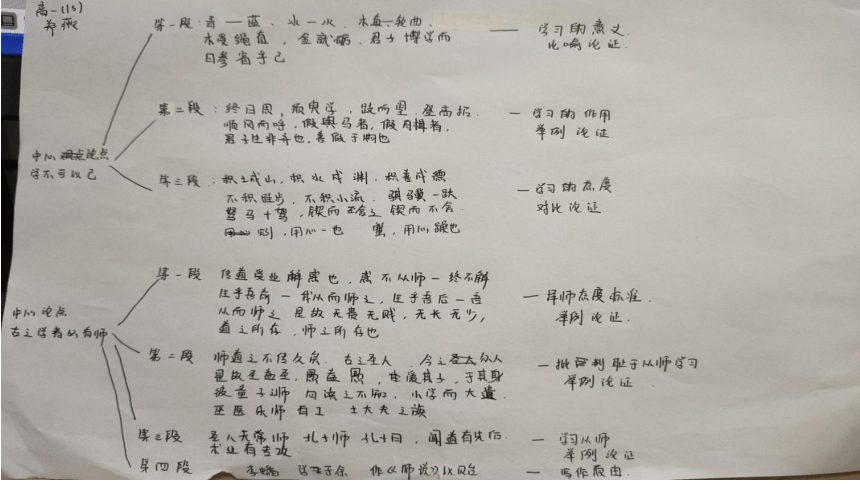 高一(15)
郑薇
第一段：青——蓝．水—冰．木直一轮曲．
木受绳直，金就砺，君子博学而
日参省乎己
—— 学习的意义．
比喻论证．
第二段：终日思，须臾学．跂而望．登高招．
顺风而呼．假舆马者，假舟楫者，
君子生非异也，善假于物也
— 学习的作用
举例论证
中心论点
学不可以已
第三段：积土成山，积水成渊．积善成德
不积跬步，不积小流．骐骥一跃
驽马十驾，锲而舍之 锲而不舍．
蚓，用心一也 蟹，用心躁也
— 学习的态度
对比论证
第一段 传道受业解惑也，惑不从师—终不解
生乎吾前—我从而师之，生乎吾后—吾
从而师之 是故无贵无贱，无长无少，
道之所存．师之所存也
— 择师态度标准．
举例论证．
中心论点
古之学者必有师
第二段 师道之不传久矣．古之圣人．今之众人
是故圣益圣，愚益愚，爱其子，于其身
彼童子之师 句读之不知，小学而大遗．
巫医乐师百工 士大夫之族
— 批判耻于从师学习
举例论证
第三段 圣人无常师 孔子师 孔子曰，闻道有先后．
术业有专攻
— 学习从师
举例论证
第四段 李蟠 学于余 作《师说》以贻之
— 写作原由．